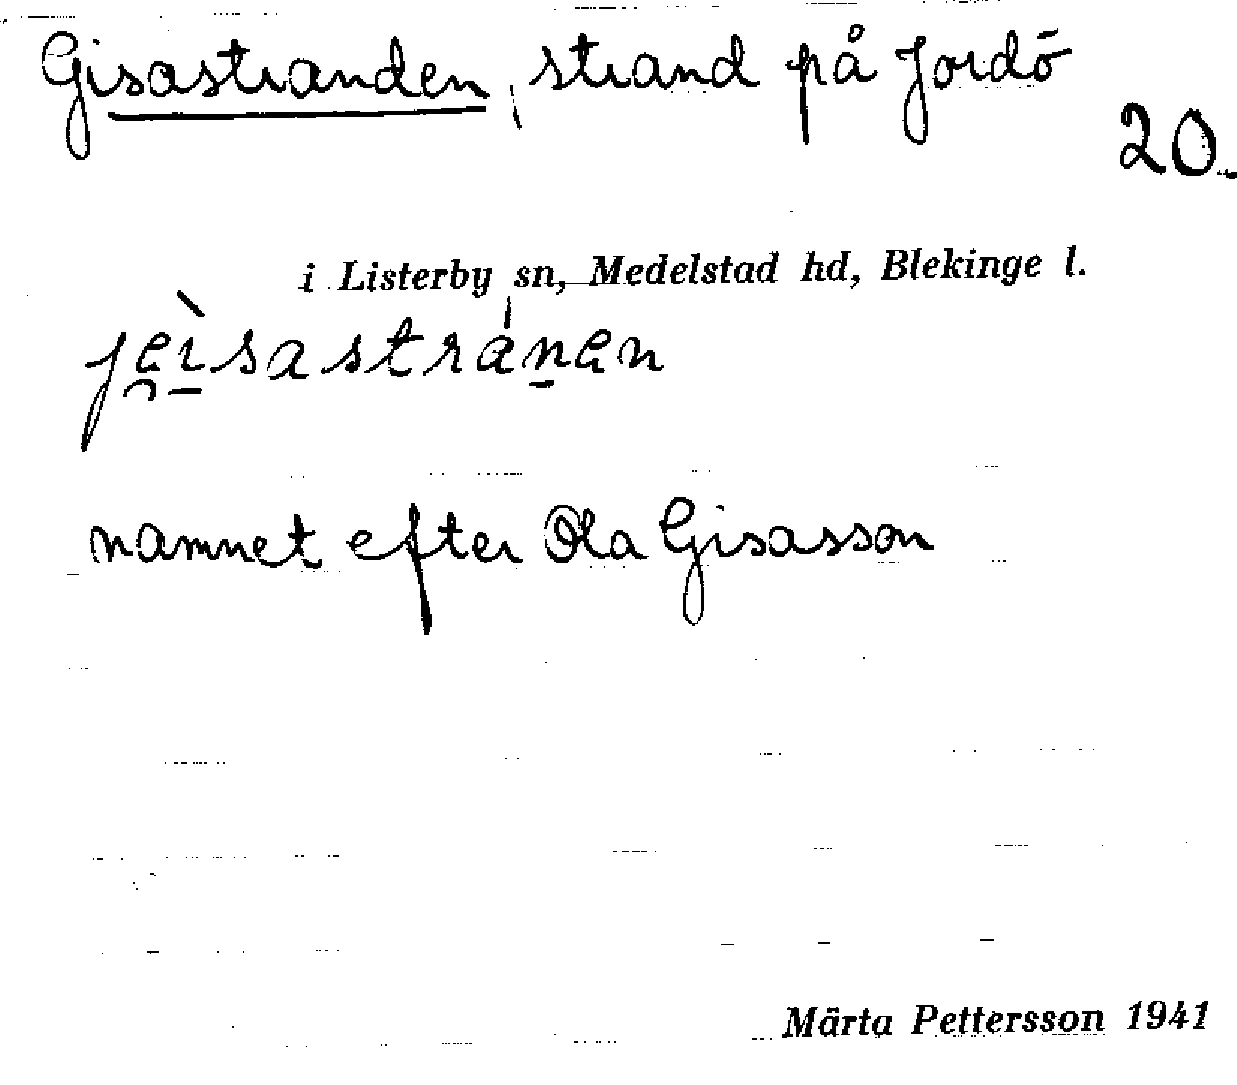 Gisastranden, strand på Jordö
20.
i Listerby sn, Medelstad hd, Blekinge l.
je̯ì̱sastrán̠en
namnet efter Ola Gisasson
Märta Pettersson 1941